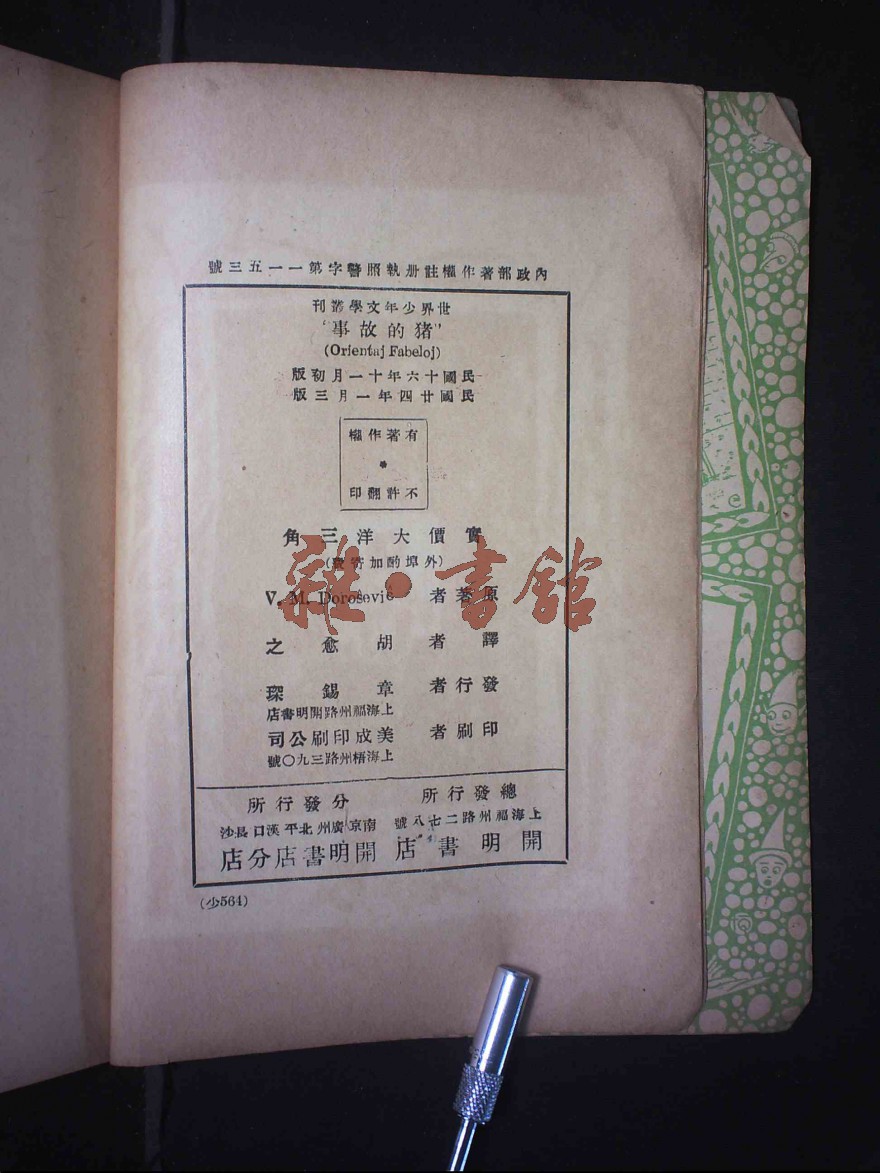 內政部著作權註册執照警字第一一五三號
世界少年文學叢刊
"豬的故事"
(Orientaj Fabeloj)
民國十六年十一月初版
民國廿四年一月三版
有著作權
不許翻印
實價大洋三角
(外埠酌加寄費)
原著者 V. M. Doroŝeviĉ
譯者 胡愈之
發行者 章錫琛
上海福州路開明書店
印刷者 美成印刷公司
上海梧州路三九〇號
總發行所 分發行所
上海福州路二七八號 南京廣州北平漢口長沙
開明書店 開明書店分店
(少564)
雜·書館